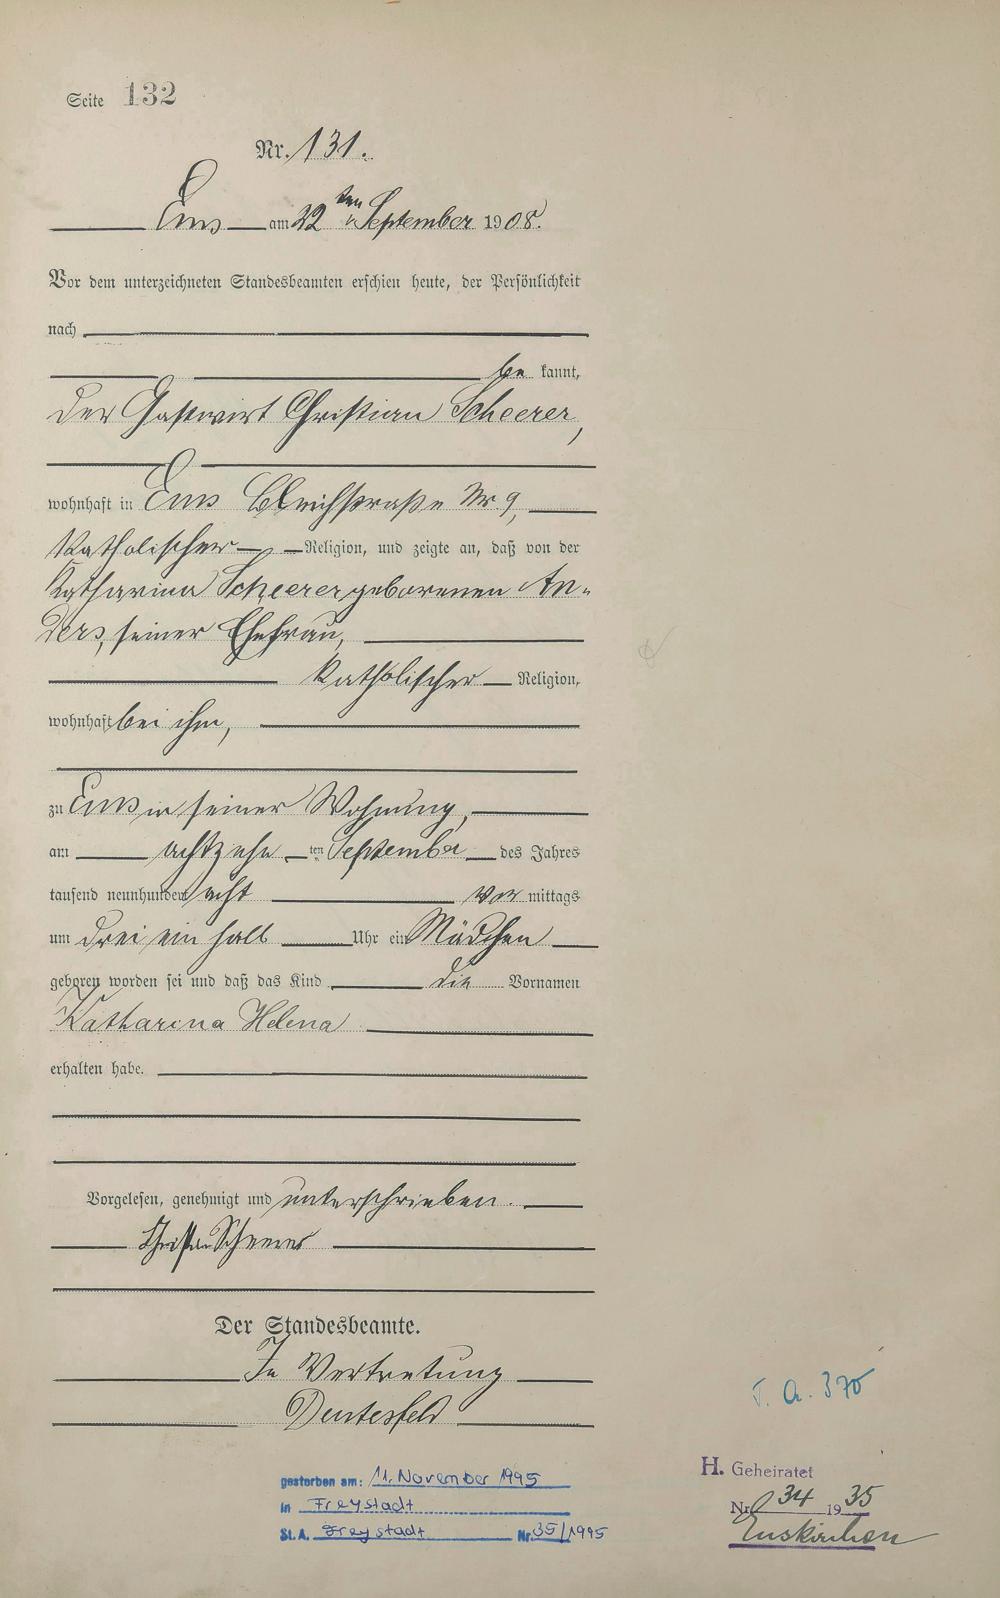 Seite 132
Nr. 131.
Ems am 22 ten September 1908.
Vor dem unterzeichneten Standesbeamten erschien heute, der Persönlichkeit
nach
be kannt,
der Gastwirt Christian Scheerer,
wohnhaft in Ems Bleichstraße Nr. 9,
katholischer Religion, und zeigte an, daß von der
Katharina Scheerer geborenen An-
ders, seiner Ehefrau,
katholischer Religion,
wohnhaft bei ihm,
zu Ems in seiner Wohnung,
am achtzehn ten September des Jahres
tausend neunhundert acht vor mittags
um drei ein halb Uhr ein Mädchen
geboren worden sei und daß das Kind die Vornamen
Katharina Helena
erhalten habe.
Vorgelesen, genehmigt und unterschrieben.
Christian Scheerer
Der Standesbeamte.
In Vertretung
Deutesfeld
T. A. 370
gestorben am: 11. November 1995
in Freystadt
St. A. Freystadt Nr. 35/1995
H. Geheiratet
Nr. 34 1935
Euskirchen